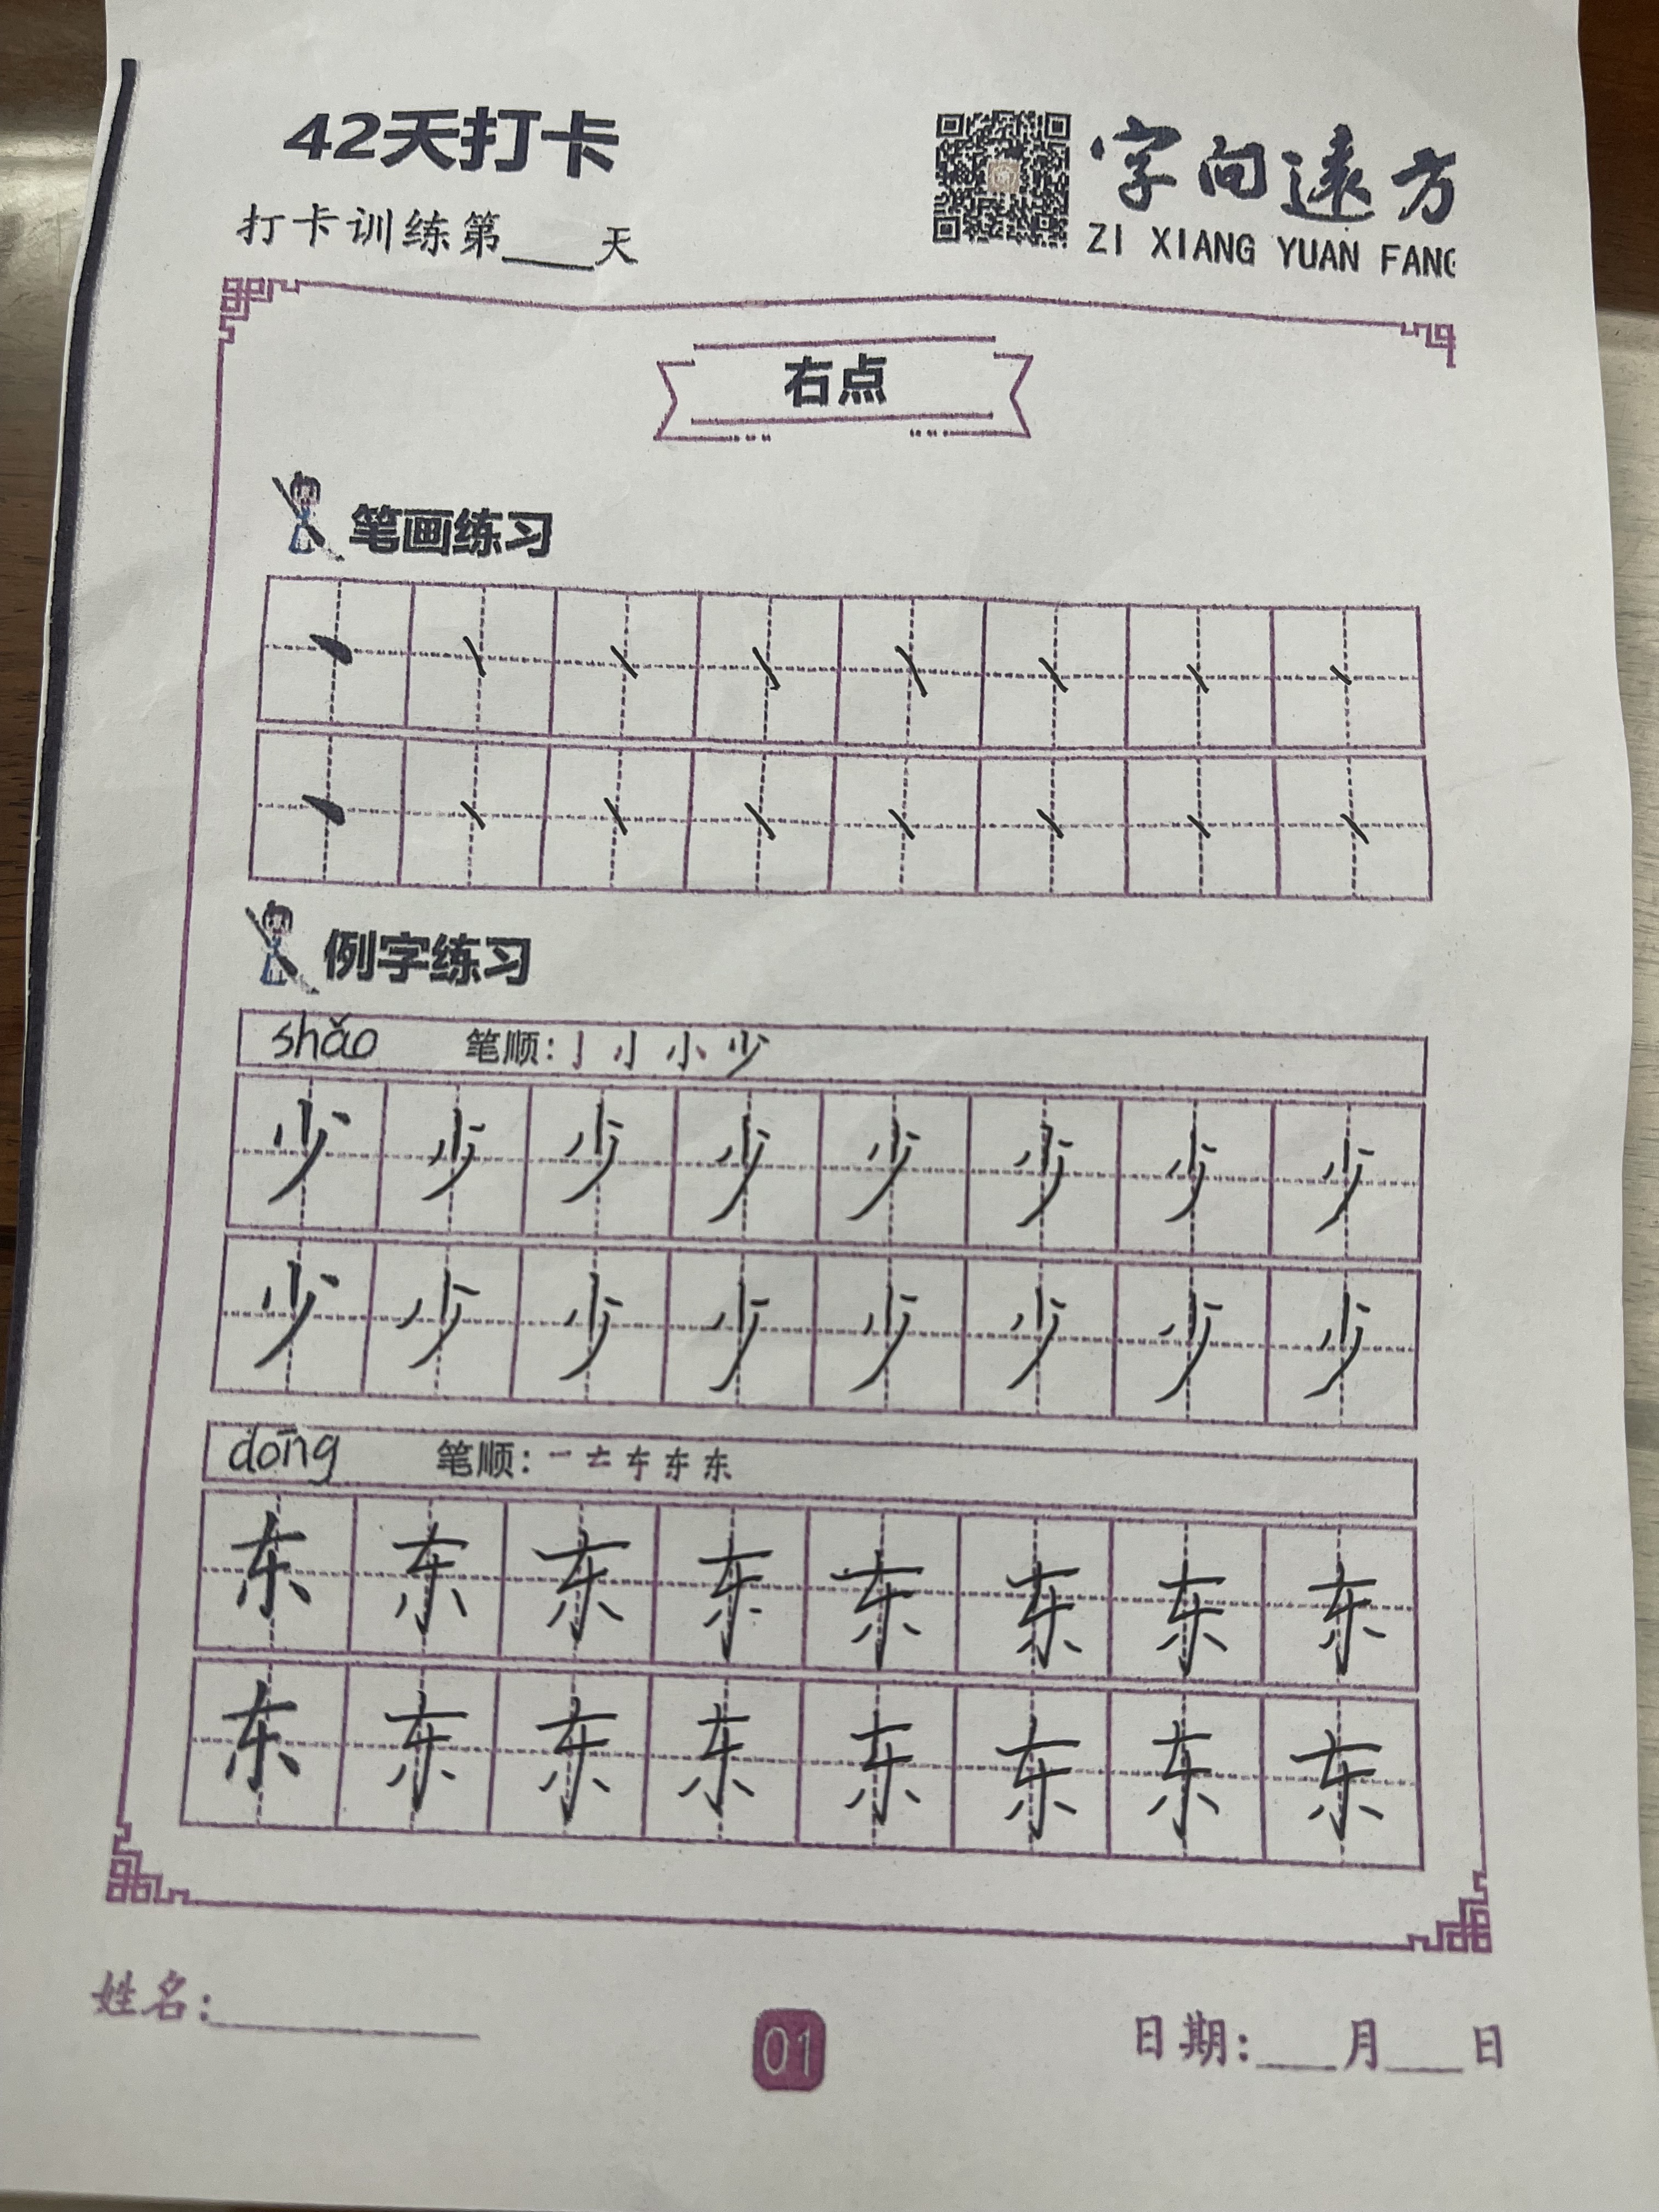 42天打卡
打卡训练第____天
字向远方
ZI XIANG YUAN FANG
右点
笔画练习
丶 丶 丶 丶 丶 丶 丶 丶
丶 丶 丶 丶 丶 丶 丶 丶
例字练习
shǎo 笔顺: 亅 小 少
少 少 少 少 少 少 少 少
少 少 少 少 少 少 少 少
dōng 笔顺: 一 东
东 东 东 东 东 东 东 东
东 东 东 东 东 东 东 东
姓名:
01
日期:___月___日